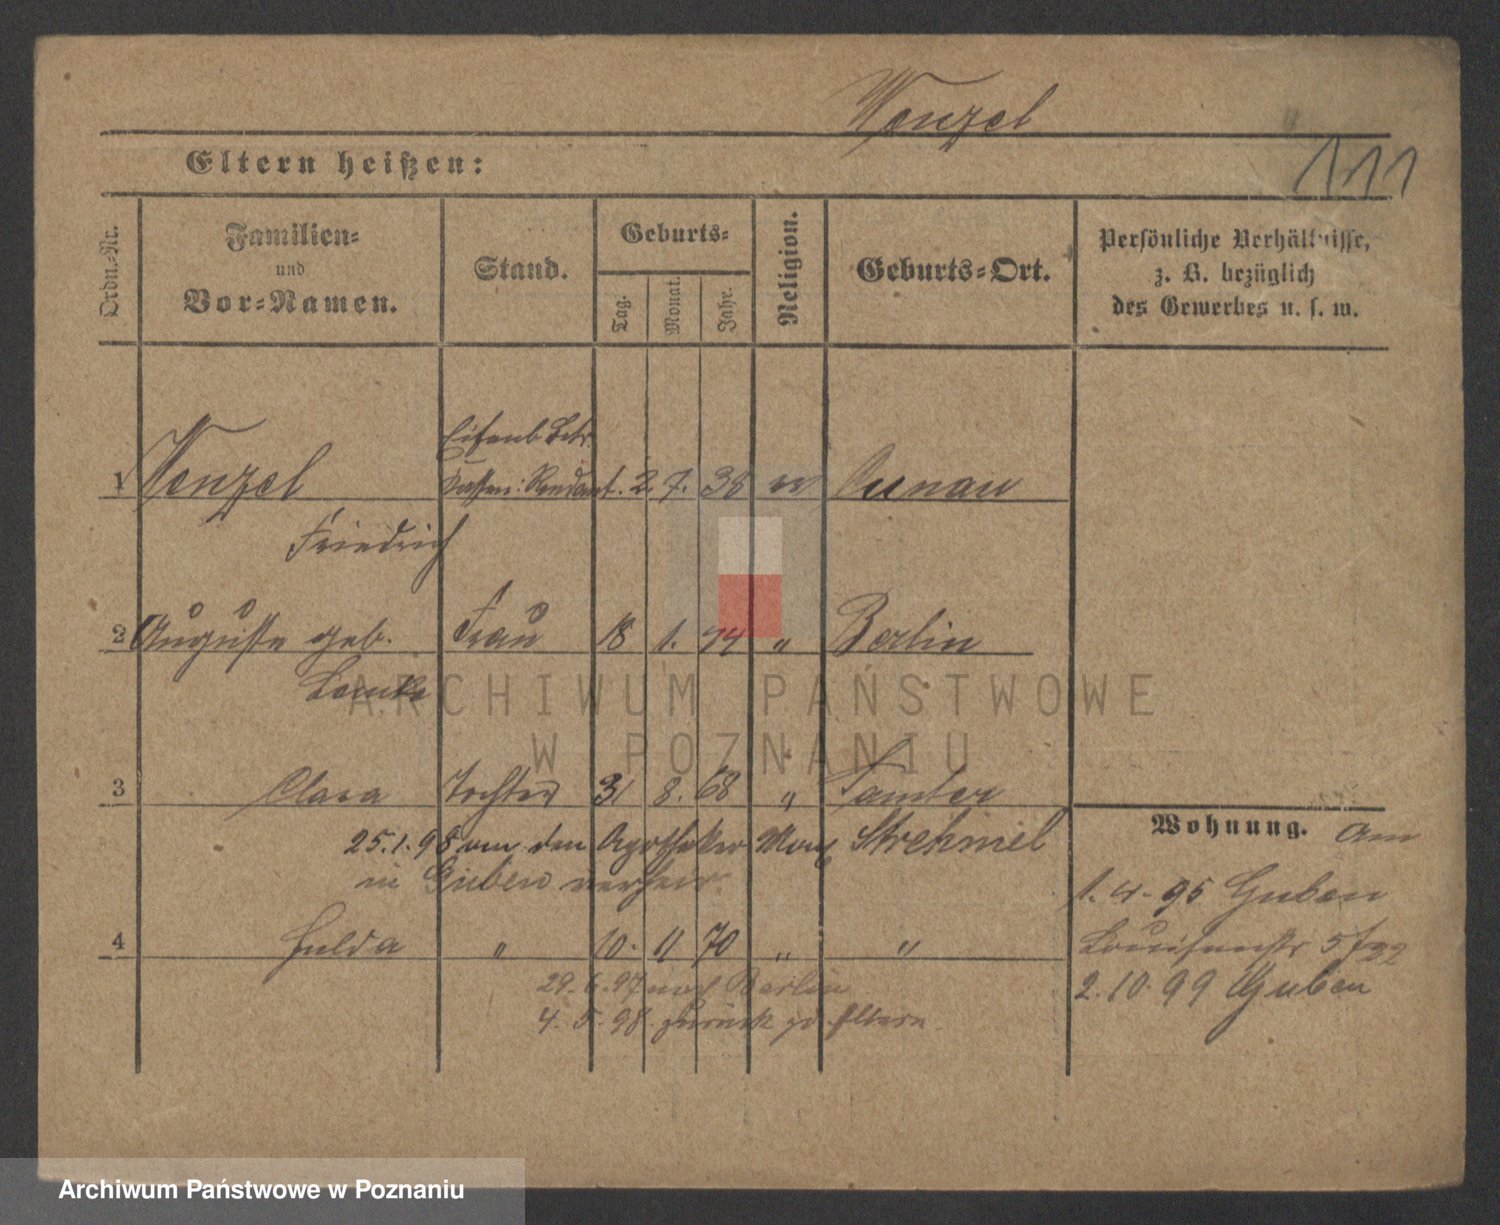 Wenzel
Eltern heißen:
111
Ordn.-Nr.
Familien-
und
Vor-Namen.
Stand.
Geburts-
Tag.
Monat.
Jahr.
Religion.
Geburts-Ort.
Persönliche Verhältnisse,
z. B. bezüglich
des Gewerbes u. s. w.
Eisenb. Betr.
1 Wenzel Kassen: Rendant. 2. 7. 38 ev Cunau
Friedrich
2 Auguste geb. Frau 18 1. 44 " Berlin
Lemke
3 Clara Tochter 31 8. 68 " Samter
25.1.98 an den Apotheker Max Strehmel
in Guben verheir.
4 Hulda " 10. 11 70 " "
29.6.97 nach Berlin
4.5.98. zurück zu Eltern
Wohnung. Am
1.4.95 Guben
Louisenstr 5
2.10.99 Guben
ARCHIWUM PAŃSTWOWE
W POZNANIU
Archiwum Państwowe w Poznaniu